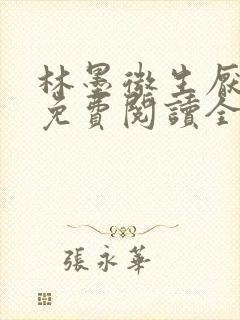 林墨徵生厭
免費閱讀全
張永華